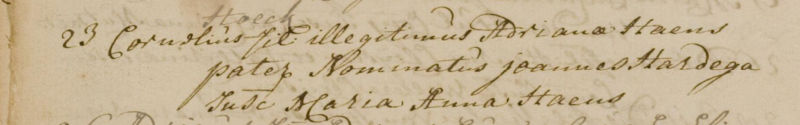 Hoeck
23 Cornelius fil illegitimus Adriana Haens
pater Nominatus joannes Hardega
Susc Maria Anna Haens